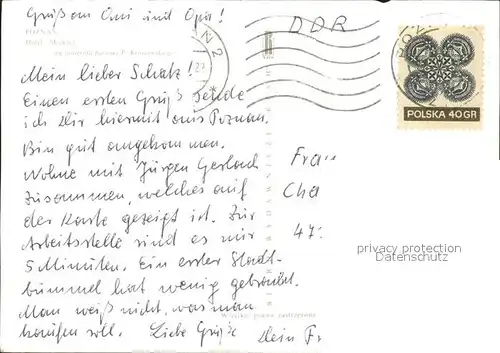 Gruß an Omi und Opa!
DDR
POZNAŃ
Mein lieber Schatz!
Einen ersten Gruß sende
ich Dir hiermit aus Poznan.
Bin gut angekommen.
Wohne mit Jürgen Gerlach
zusammen, welches auf
der Karte gezeigt ist. Zur
Arbeitsstelle sind es nur
5 Minuten. Ein erster Stadt-
bummel hat wenig gebracht.
Man weiß nicht, was man
kaufen soll. Liebe Grüße
Dein Fr
POLSKA 40 GR
Frau
Cha
47
privacy protection
Datenschutz